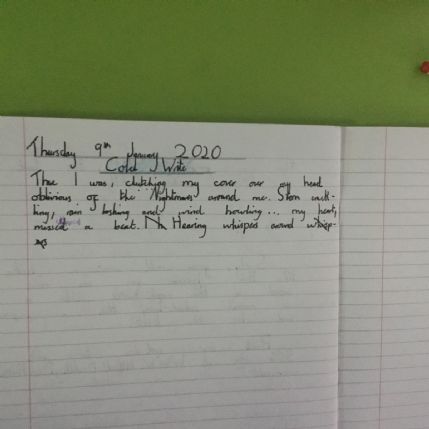 Thursday 9th January 2020
Cold Write
I was, clutching my cover over my head
oblivious of the Nightmare around me. Storm
rain lashing and wind howling... my heart
missed a beat. Hearing whispers around